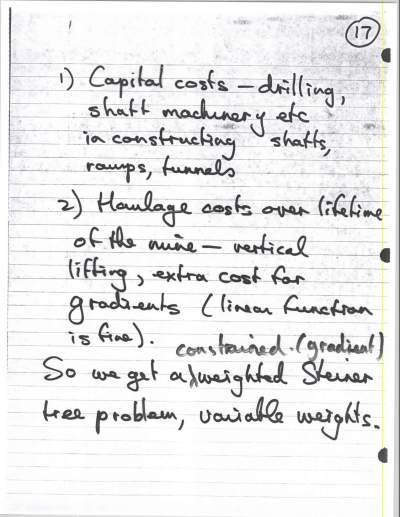 17
1) Capital costs – drilling,
shaft machinery etc
in constructing shafts,
ramps, tunnels
2) Haulage costs over lifetime
of the mine – vertical
lifting, extra cost for
gradients (linear function
is fine).
constrained (gradient)
So we get a weighted Steiner
tree problem, variable weights.